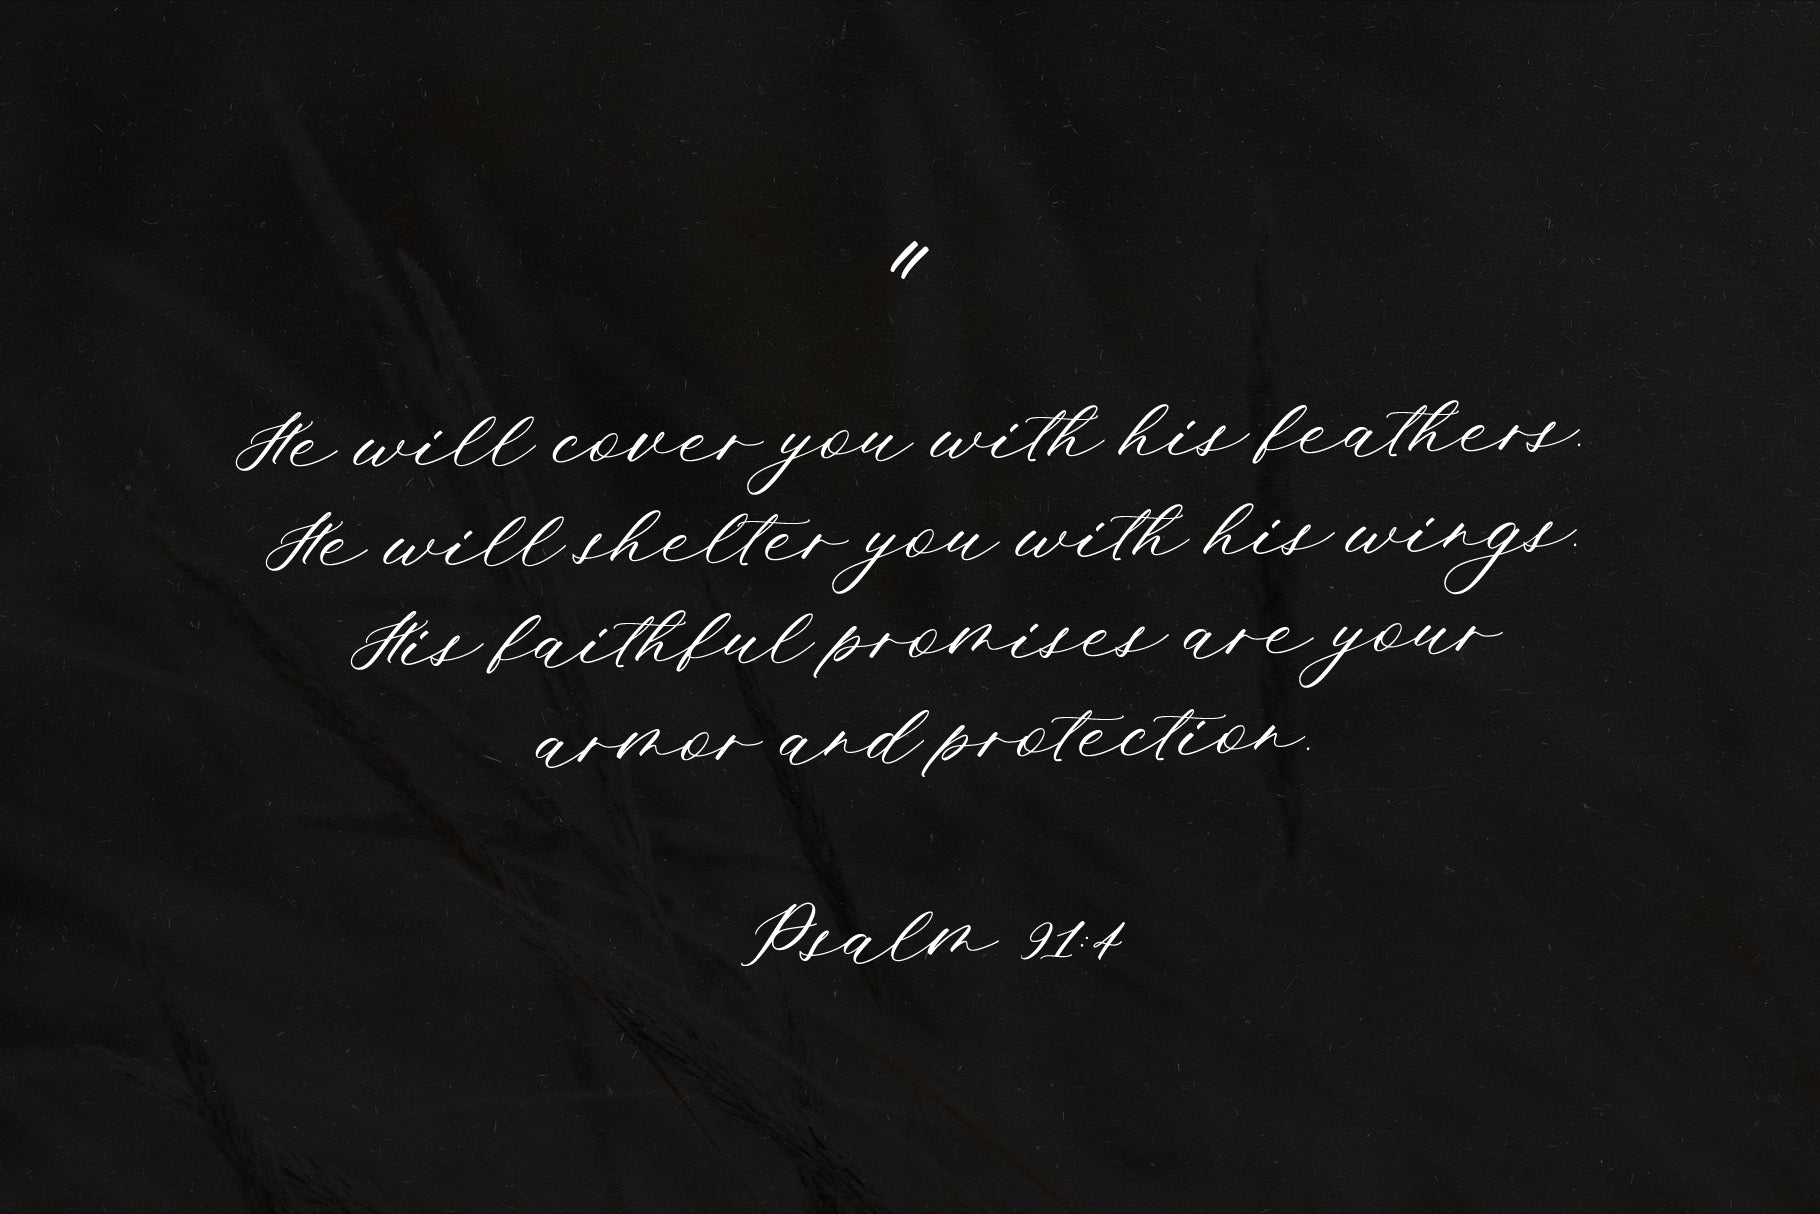 "
He will cover you with his feathers.
He will shelter you with his wings.
His faithful promises are your
armor and protection.
Psalm 91:4